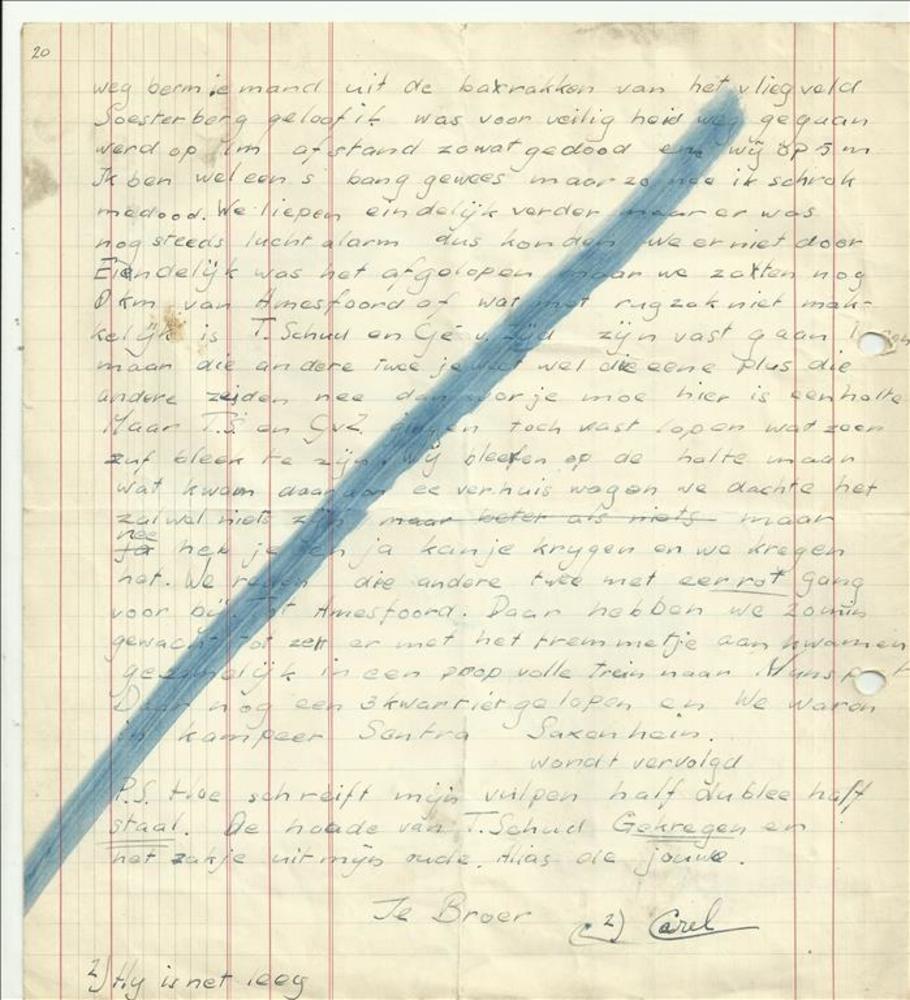 20
weg berm iemand uit de barrakken van het vliegveld
Soesterberg geloof ik was voor veilig heid weg gegaan
werd op 1m afstand zowat gedood en wij op 5 m
Ik ben wel een s bang gewees maar zo nee ik schrok
medood. We liepen eindelijk verder maar er was
nog steeds lucht alarm dus konden we er niet door
Eindelijk was het afgelopen maar we zatten nog
km van Amesfoord of wat met rugzak niet mak-
kelijk is T. Schud en Gé v. Zijd zijn vast gaan
maar die andere twee je weet wel die eene plus die
andere zeiden nee dan wor je moe hier is een halte
Maar T.S en GvZ. gingen toch vast lopen wat zoon
zuf bleek te zijn. Wij bleefen op de halte maan
wat kwam daar aan ee verhuis wagen we dachte het
zal wel niets zijn maar beter als niets maar
nee
ja heb je en ja kan je krygen en we kregen
het. We reden die andere twee met eer rot gang
voor bij tot Amesfoord. Daar hebben we 20min
gewacht tot zen er met het tremmetje aan kwamen
gezamelijk in een prop volle trein naar
Daar nog een 3kwartier gelopen en We waren
in kampeer Sentra Saxenheim.
wordt vervolgd
P.S. Hoe schreift mijn vulpen half dublee half
staal. De hoade van T.Schud Gekregen en
het zakje uit mijn oude. Alias de jouwe.
Je Broer 2) Carel
2) Hy is net leeg